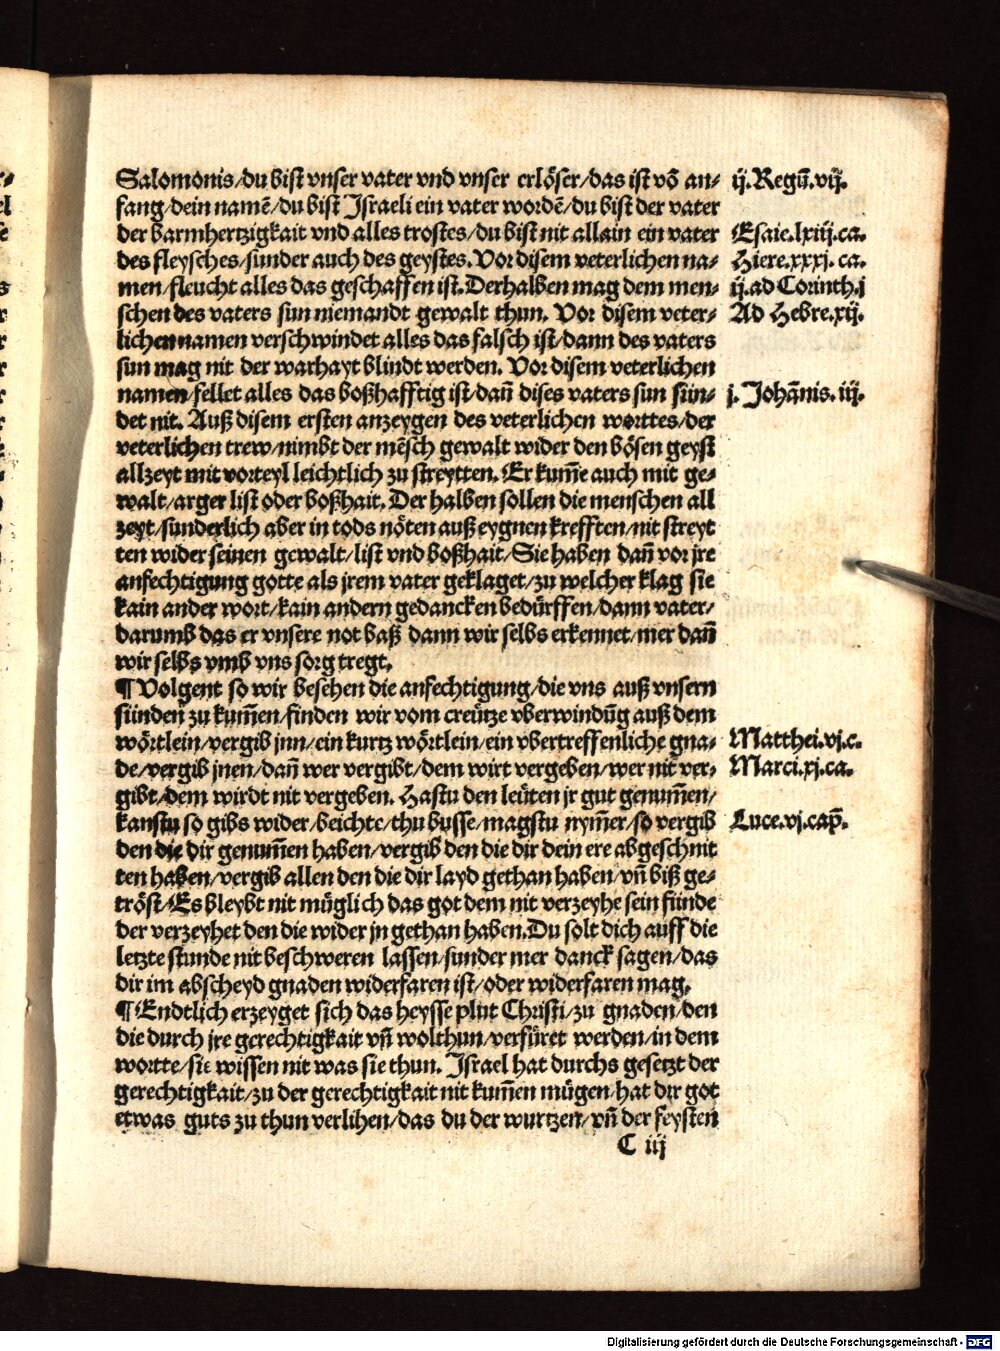 Salomonis/du bist vnser vater vnd vnser erlöser/das ist võ an⸗ ij.Regū.vij.
fang/dein namē/du bist Israeli ein vater wordē/du bist der vater
der barmhertzigkait vnd alles trostes/du bist nit allain ein vater Esaie.lxiij.ca.
des fleysches/sunder auch des geystes. Vor disem veterlichen na⸗ Hiere.xxxj.ca.
men/fleucht alles das geschaffen ist. Derhalben mag dem men⸗ ij.ad Corinth.j
schen des vaters sun niemandt gewalt thun. Vor disem veter⸗ Ad Hebre.xij.
lichen namen verschwindet alles das falsch ist/dann des vaters
sun mag nit der warhayt blindt werden. Vor disem veterlichen
namen/fellet alles das boßhafftig ist/dañ dises vaters sun sün⸗ j. Johānis. iij.
det nit. Auß disem ersten anzeygen des veterlichen worttes/der
veterlichen trew/nimbt der mēsch gewalt wider den bösen geyst
allzeyt mit vorteyl leichtlich zu streytten. Er kum̄e auch mit ge⸗
walt/arger list oder boßhait. Der halben sollen die menschen all
zeyt/sunderlich aber in tods nöten auß eygnen krefften/nit streyt
ten wider seinen gewalt/list vnd boßhait/Sie haben dañ vor jre
anfechtigung gotte als jrem vater geklaget/zu welcher klag sie
kain ander wort/kain andern gedancken bedürffen/dann vater/
darumb das er vnsere not baß dann wir selbs erkennet/mer dañ
wir selbs vmb vns sorg tregt.
¶ Volgent so wir besehen die anfechtigung/die vns auß vnsern
sünden zu kum̄en/finden wir vom creütze vberwindūg auß dem
wörtlein/vergib jnn/ein kurtz wörtlein/ein vbertreffenliche gna⸗ Matthei.vj.c.
de/vergib jnen/dañ wer vergibt/dem wirt vergeben/wer nit ver⸗ Marci.xj.ca.
gibt/dem wirdt nit vergeben. Hastu den leüten jr gut genum̄en/
kanstu so gibs wider/beichte/thu busse/magstu nym̄er/so vergib Luce.vj.cap̄.
den die dir genum̄en haben/vergib den die dir dein ere abgeschnit
ten haben/vergib allen den die dir layd gethan haben/vñ biß ge⸗
tröst/Es bleybt nit müglich das got dem nit verzeyhe sein sünde
der verzeyhet den die wider jn gethan haben. Du solt dich auff die
letzte stunde nit beschweren lassen/sunder mer danck sagen/das
dir im abscheyd gnaden widerfaren ist/oder widerfaren mag.
¶ Endtlich erzeyget sich das heysse plut Christi/zu gnaden/den
die durch jre gerechtigkait vñ wolthun/verfüret werden/in dem
wortte/sie wissen nit was sie thun. Israel hat durchs gesetzt der
gerechtigkait/zu der gerechtigkait nit kum̄en mügen/hat dir got
etwas guts zu thun verlihen/das du der wurtzen/vñ der feysten
C iij
Digitalisierung gefördert durch die Deutsche Forschungsgemeinschaft - DFG